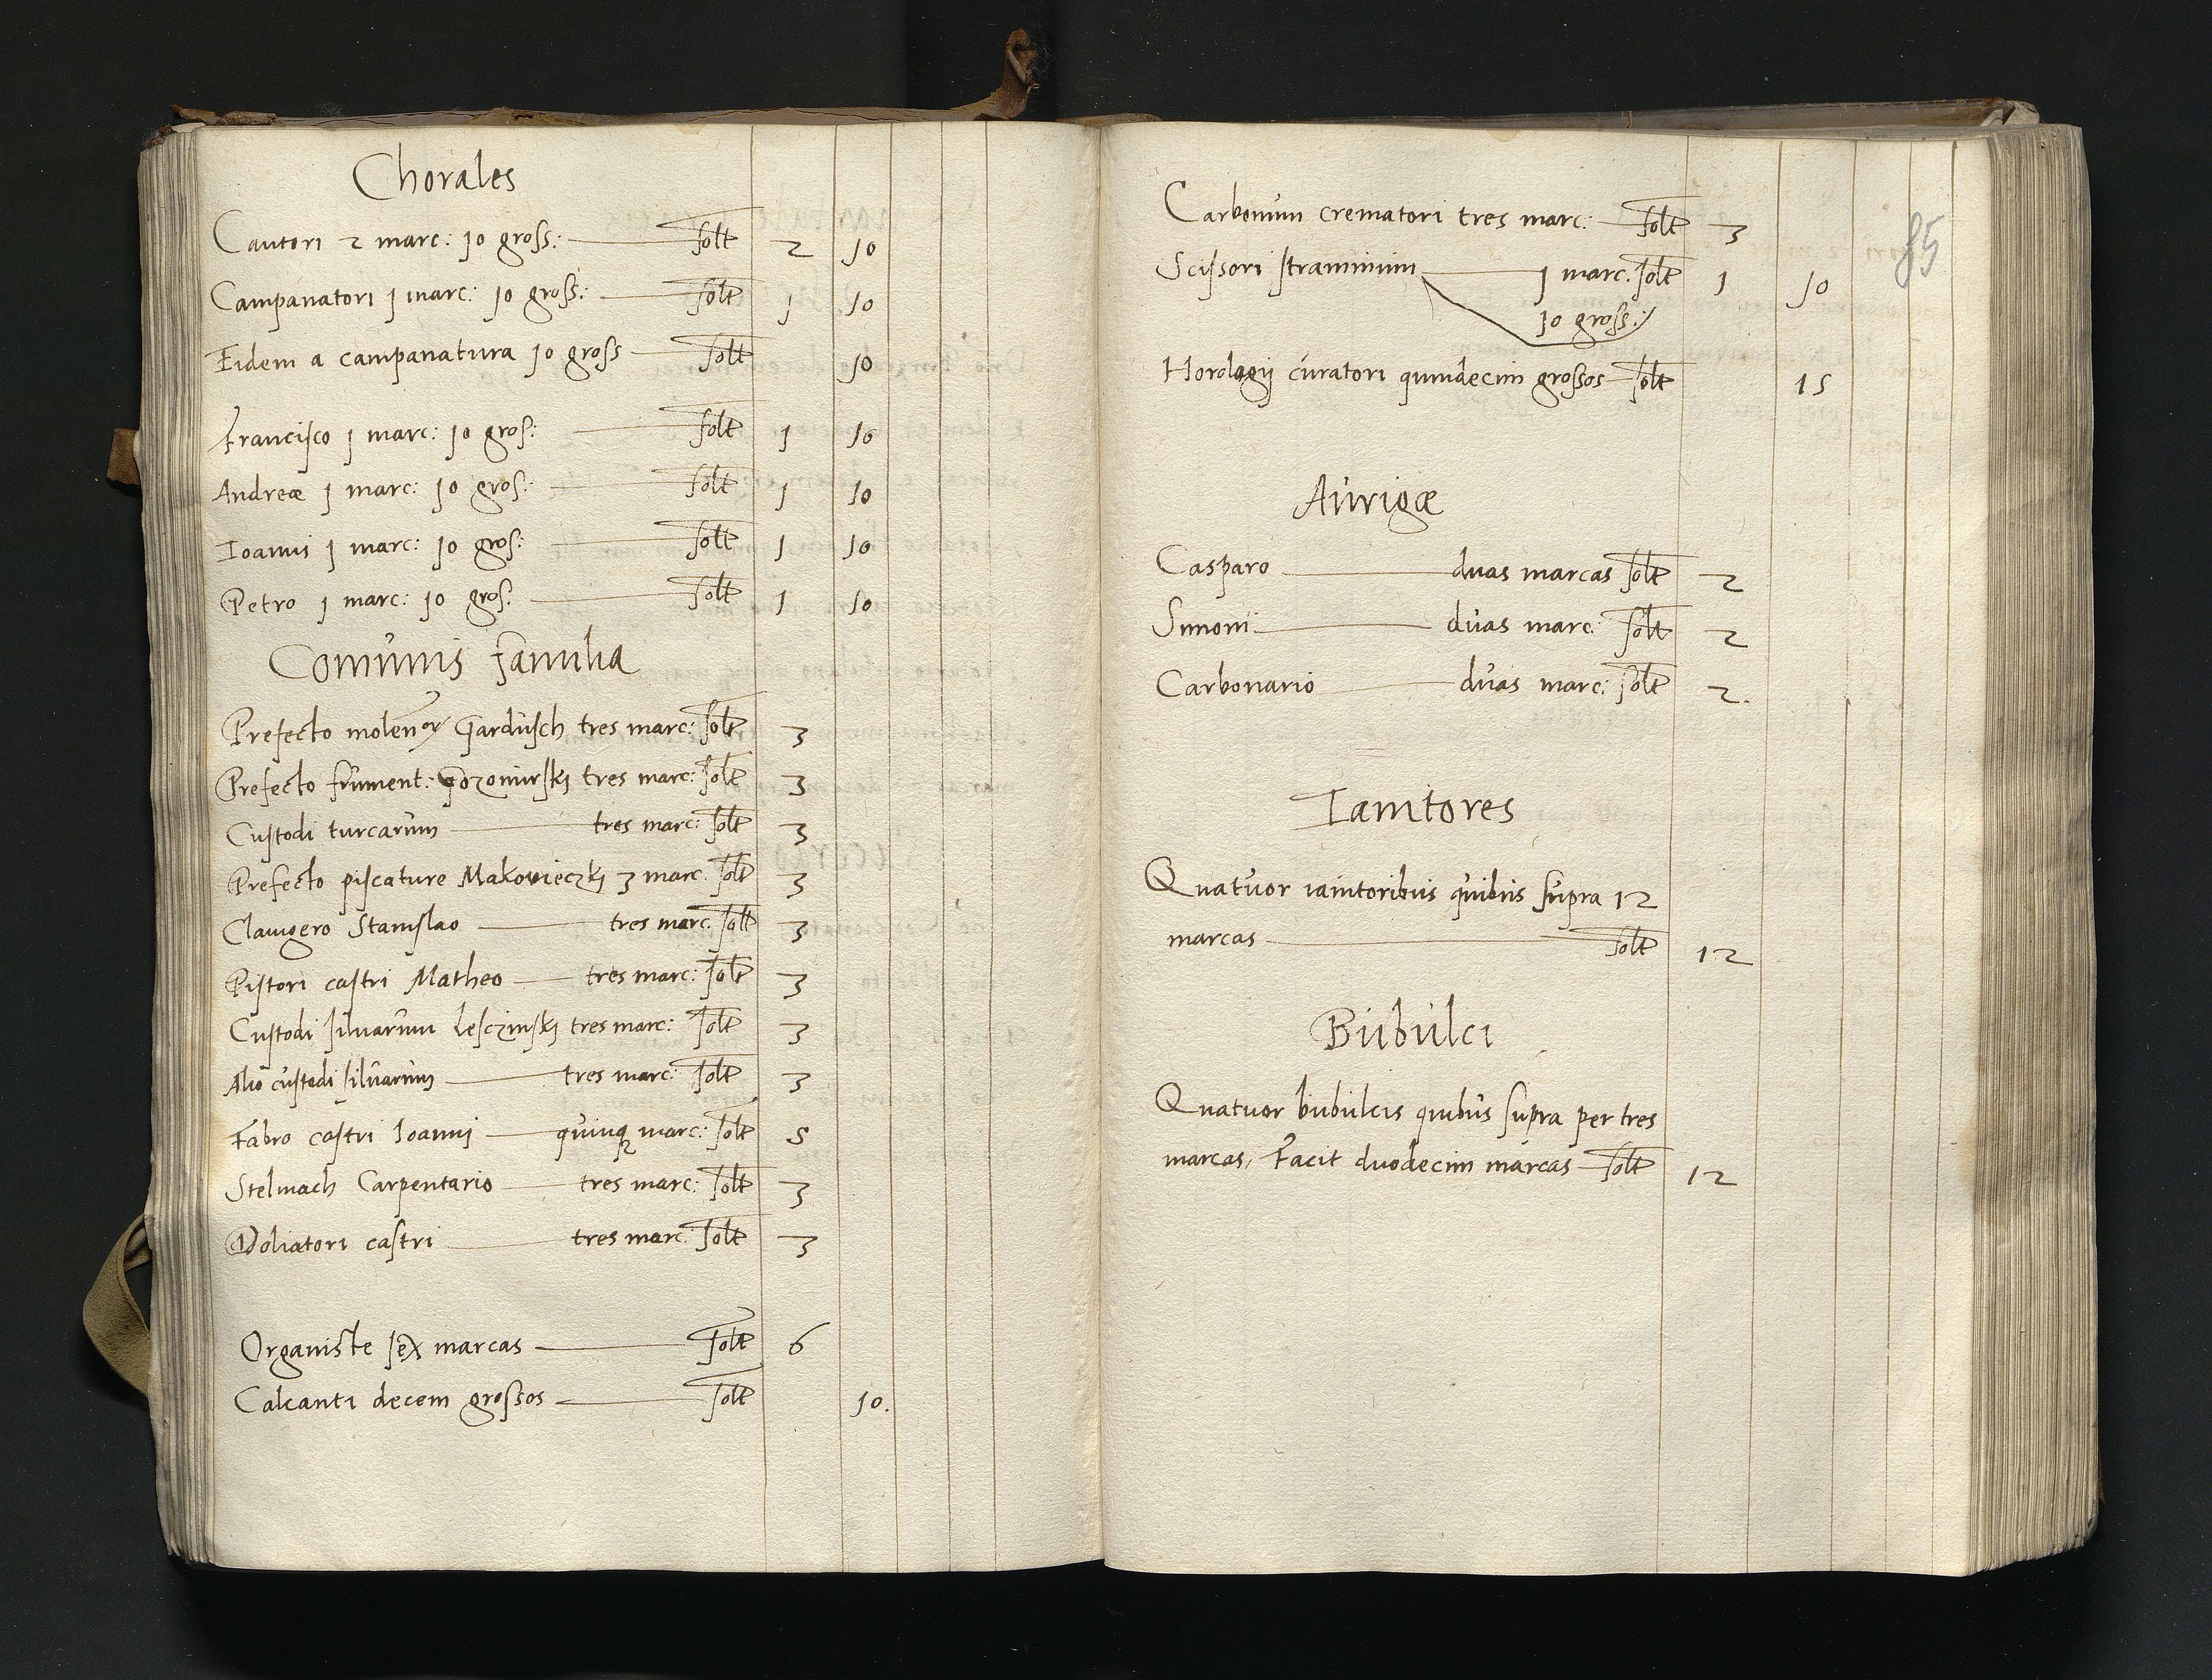 Chorales
Cantori 2 marc: 10 gross: solt 2 10
Campanatori 1 marc: 10 gross: solt 1 10
Eidem a campanatura 10 gross solt 10
Francisco 1 marc: 10 gros: solt 1 10
Andreæ 1 marc: 10 gros: solt 1 10
Ioanni 1 marc: 10 gros: solt 1 10
Petro 1 marc: 10 gros: solt 1 10
Comunis familia
Prefecto molen Gardusch tres marc: solt 3
Prefecto frument: tres marc: solt 3
Custodi turcarum tres marc: solt 3
Prefecto piscature Makovieczki 3 marc. solt 3
Clavigero Stanislao tres marc. solt 3
Pistori castri Matheo tres marc: solt 3
Custodi silvarum Lesczinski tres marc: solt 3
Alio custodi silvarum tres marc: solt 3
Fabro castri Ioanni quinq marc: solt 5
Stelmach Carpentario tres marc: solt 3
Doliatori castri tres marc. solt 3
Organiste sex marcas solt 6
Calcanti decem grossos solt 10.
85
Carbonum crematori tres marc: solt 3
Scissori straminum 1 marc. solt 1 10
10 gross:
Horologij curatori quindecim grossos solt 15
Aurigæ
Casparo duas marcas solt 2
Simoni duas marc: solt 2
Carbonario duas marc: solt 2.
Ianitores
Quatuor ianitoribus quibus supra 12
marcas solt 12
Bubulci
Quatuor bubulcis quibus supra per tres
marcas, Facit duodecim marcas solt 12